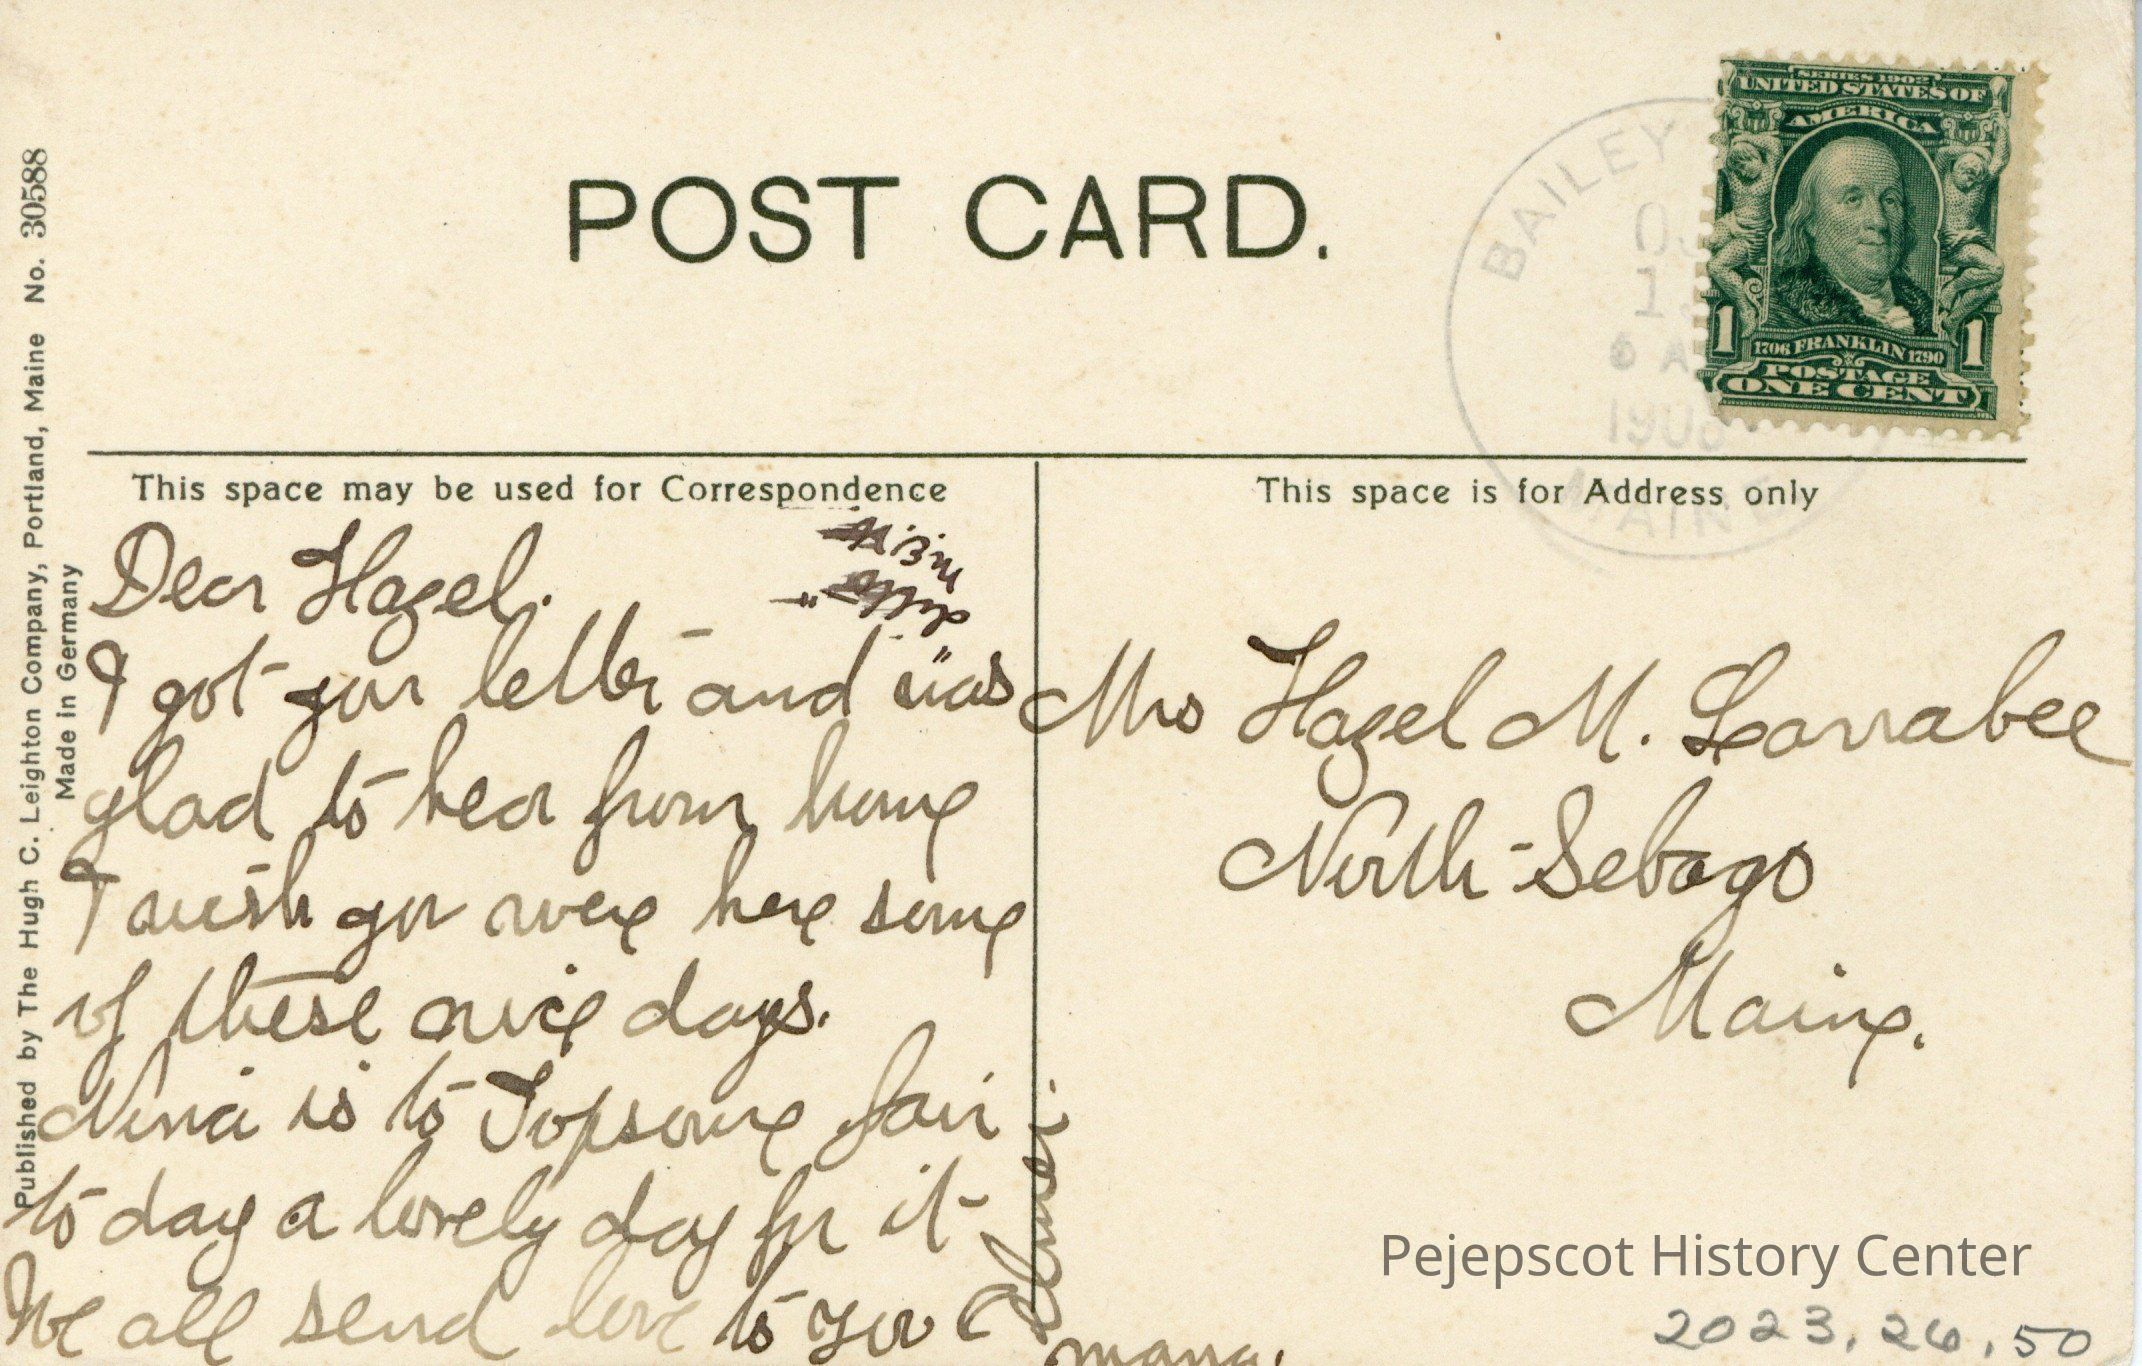 POST CARD.
BAILEY
1
6 A
190
MAINE
SERIES 1902
UNITED STATES OF
AMERICA
1 1
1706 FRANKLIN 1790
POSTAGE
ONE CENT
Published by The Hugh C. Leighton Company, Portland, Maine No. 30588
Made in Germany
This space may be used for Correspondence
Dear Hazel.
I got your letter and was
glad to hear from home
I wish you were here some
of these nice days.
Nina is to Topsome fair
to day a lovely day for it
We all send love to you
mama.
This space is for Address only
Mrs Hazel M. Larrabee
North-Sebago
Maine.
Pejepscot History Center
2023.26.50